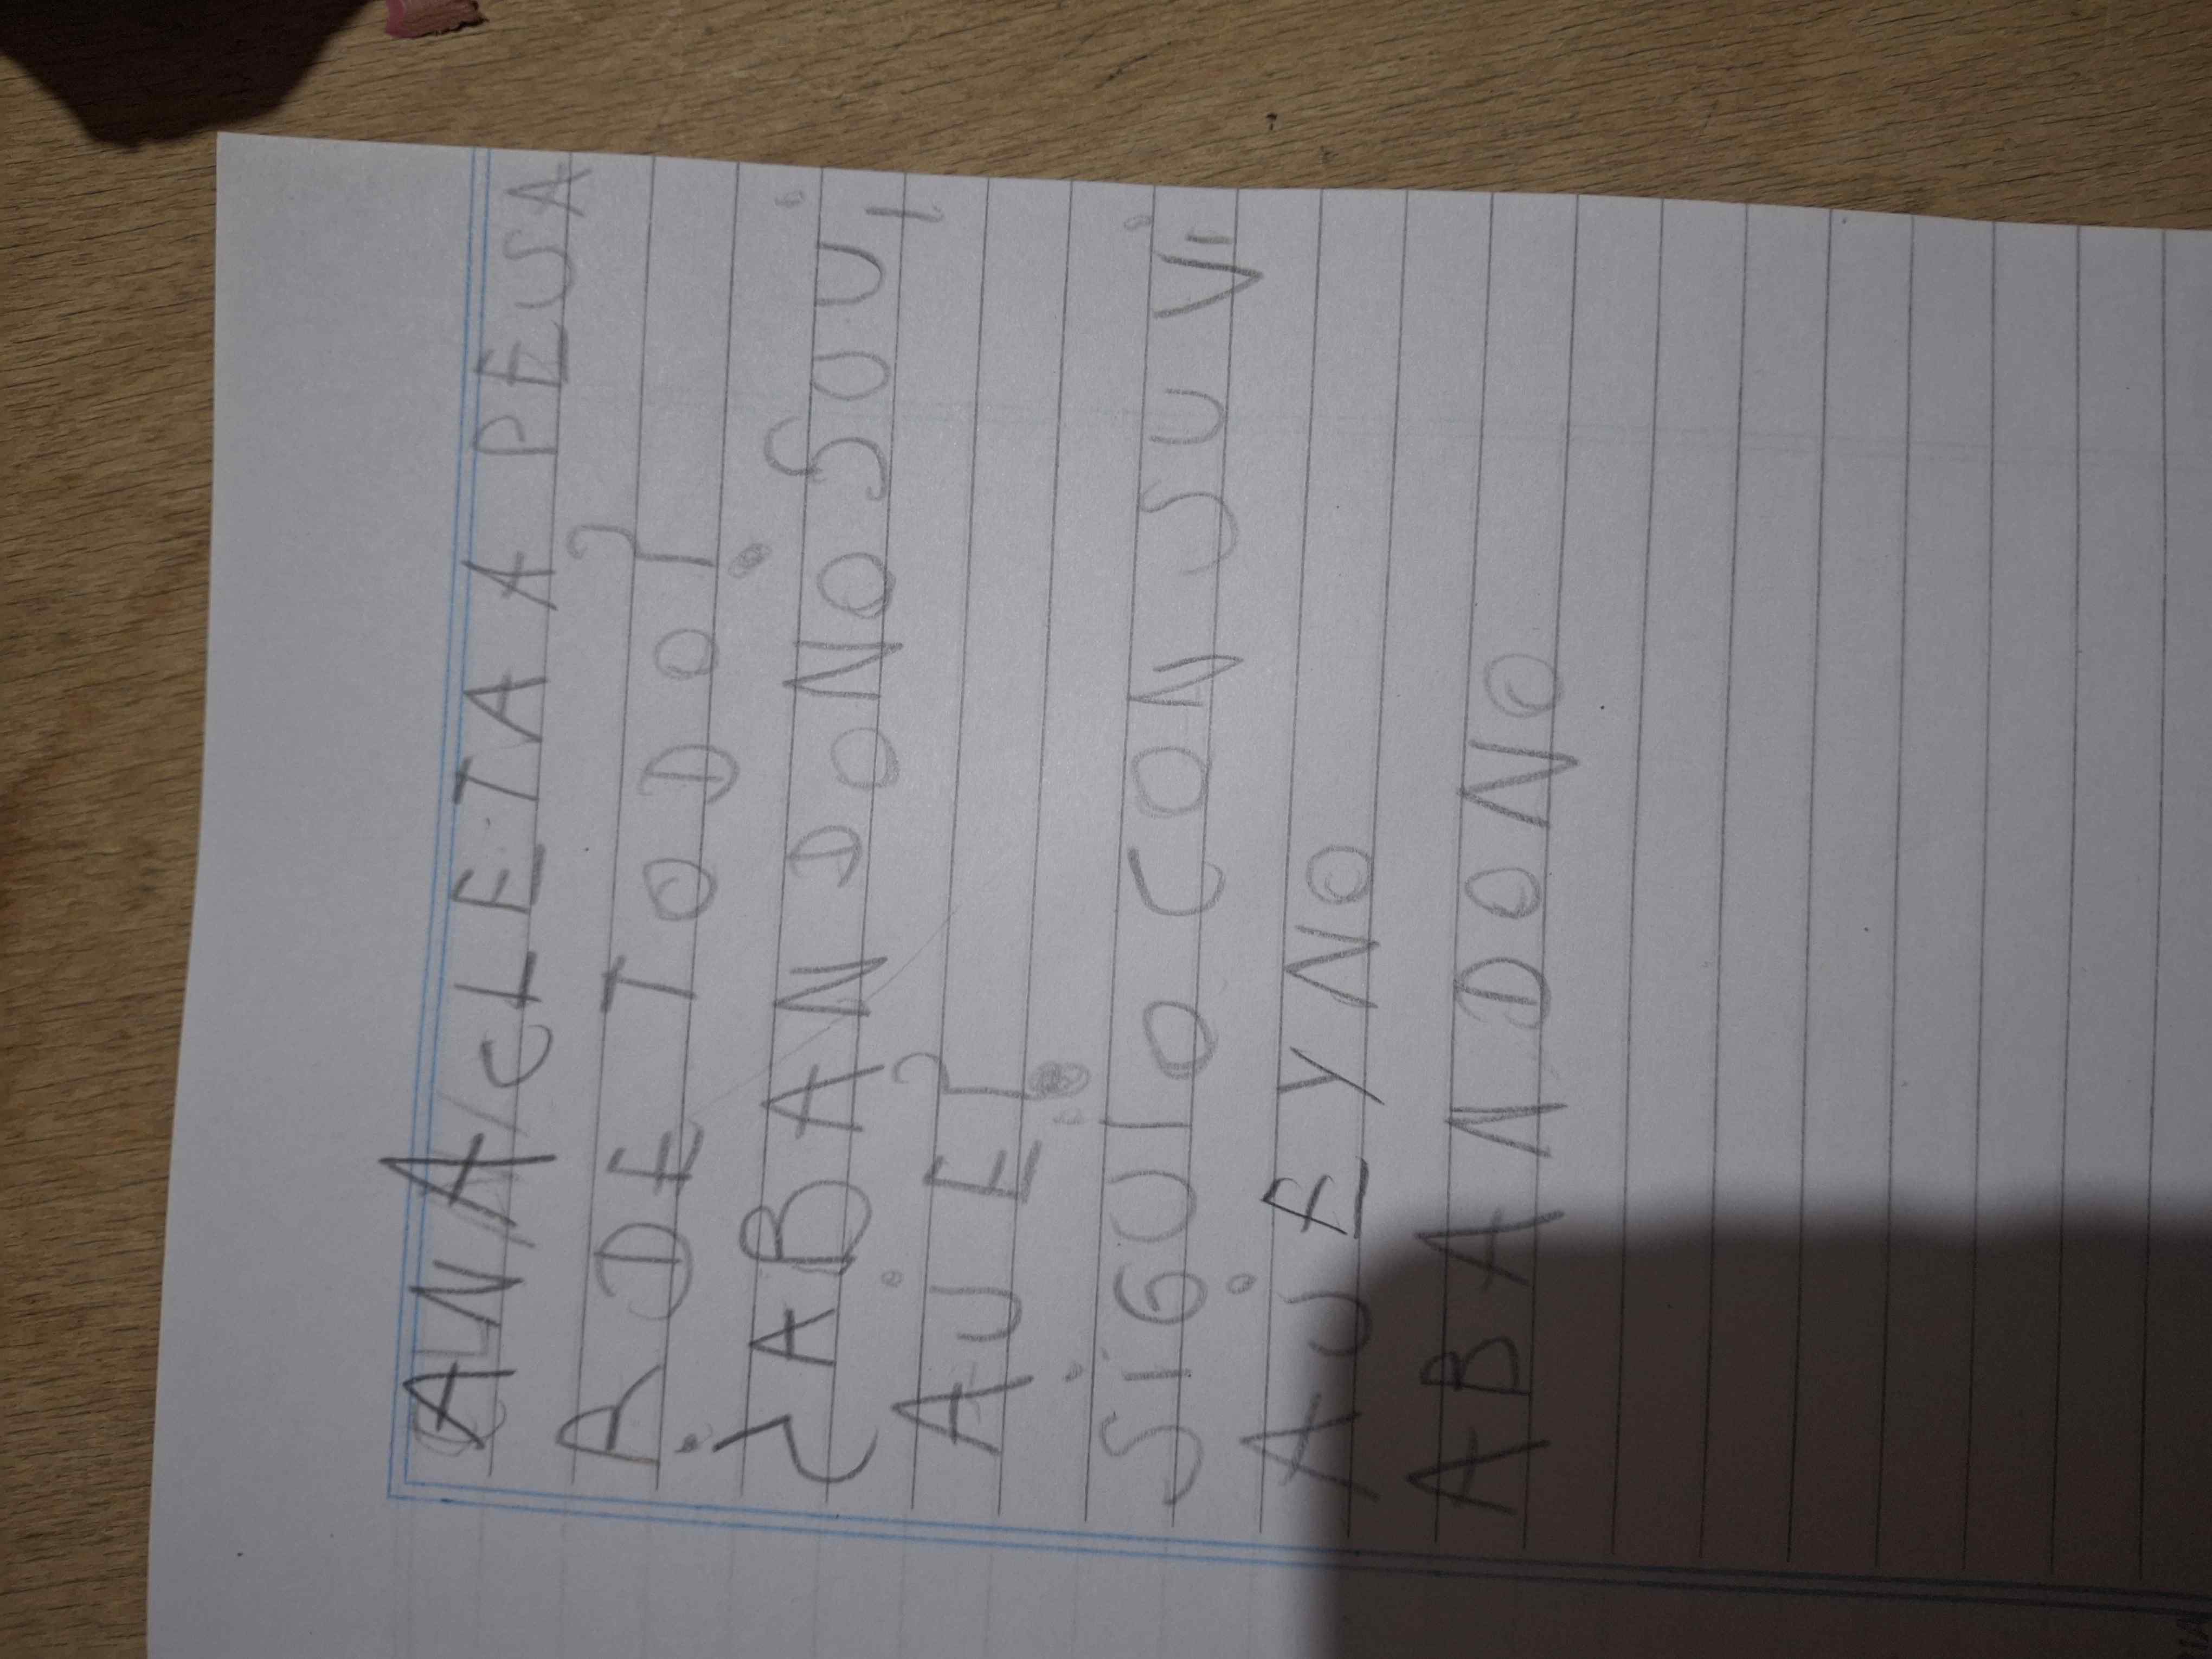 ANA/CLETA A PESA
R DE TODO?
¿ABANDONO SU Ui
AJE?
SiGUIO CON SU Vi
AJE Y NO
ABANDONO